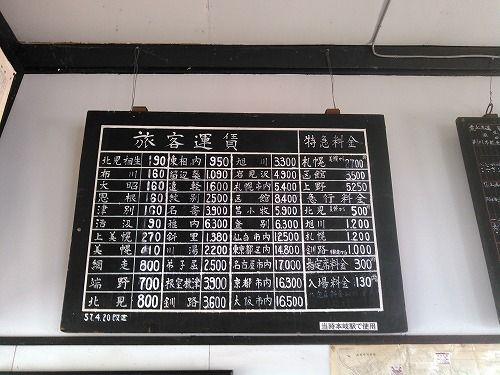 旅客運賃 特急料金
北見相生 190 東相内 950 旭川 3300 札幌 2700
布川 160 留辺蘂 1090 岩見沢 4900 函館 3500
大昭 160 遠軽 1600 札幌市内 5400 上野 5250
恩根 160 紋別 2500 函館 8400 急行料金
津別 160 名寄 3900 苫小牧 5,900 北見 500
活汲 190 稚内 6,300 登別 6,300 旭川 1,200
上美幌 270 斜里 1,380 仙台市内 12,500 札幌 1,200
美幌 410 川湯 2,200 東京都区内 14,800 釧路
網走 800 弟子屈 2,500 名古屋市内 17,000 指定席料金 300
端野 700 根室標津 3,900 京都市内 16,300 入場料金 130
北見 800 釧路 3,600 大阪市内 16,500
57.4.20改定
当時本岐駅で使用